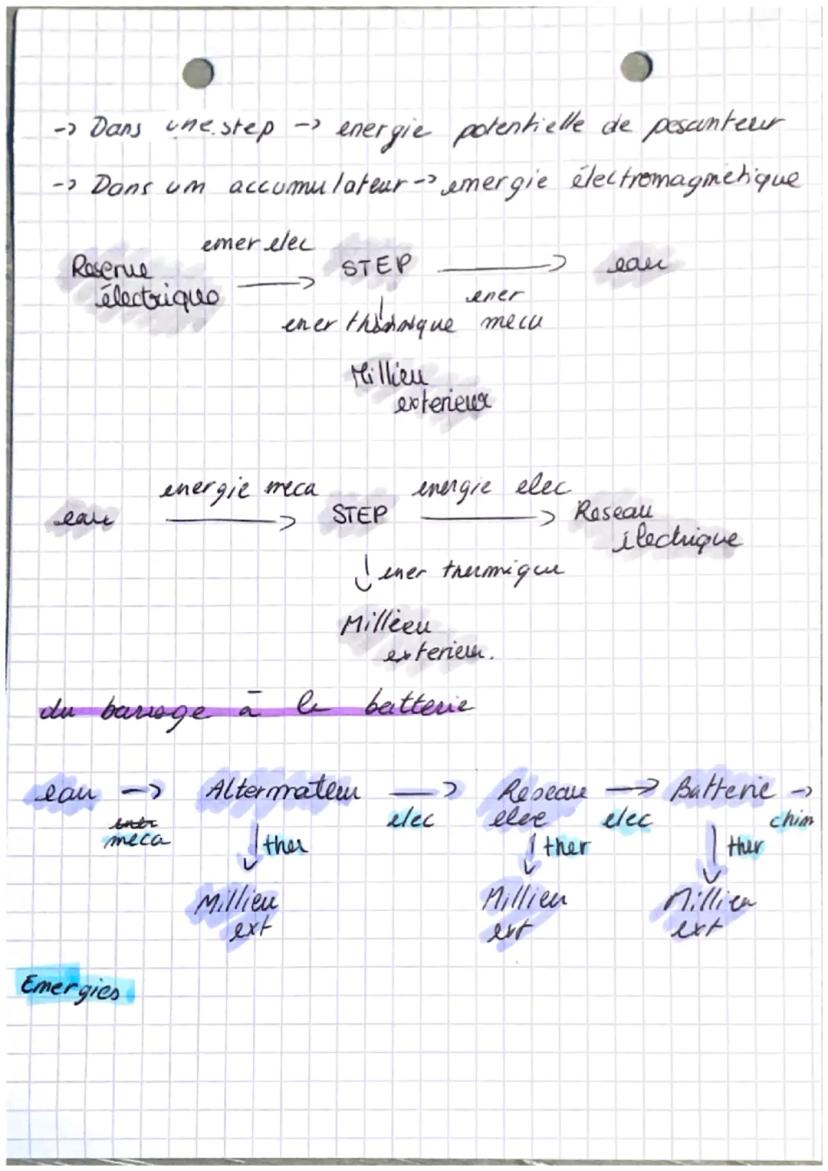 -> Dans une step -> energie potentielle de pesanteur
-> Dans um accumulateur -> emergie électromagnetique
emer elec
Reserve électrique STEP eau
ener thermique ener meca
Millieu exterieur
energie meca energie elec
eau STEP Reseau électrique
ener thermique
Millieu exterieur.
du barrage à la batterie
eau -> Altermateur -> Reseau elec -> Batterie ->
meca elec elec chim
ther ther ther
Millieu ext Millieu ext Millieu ext
Emergies